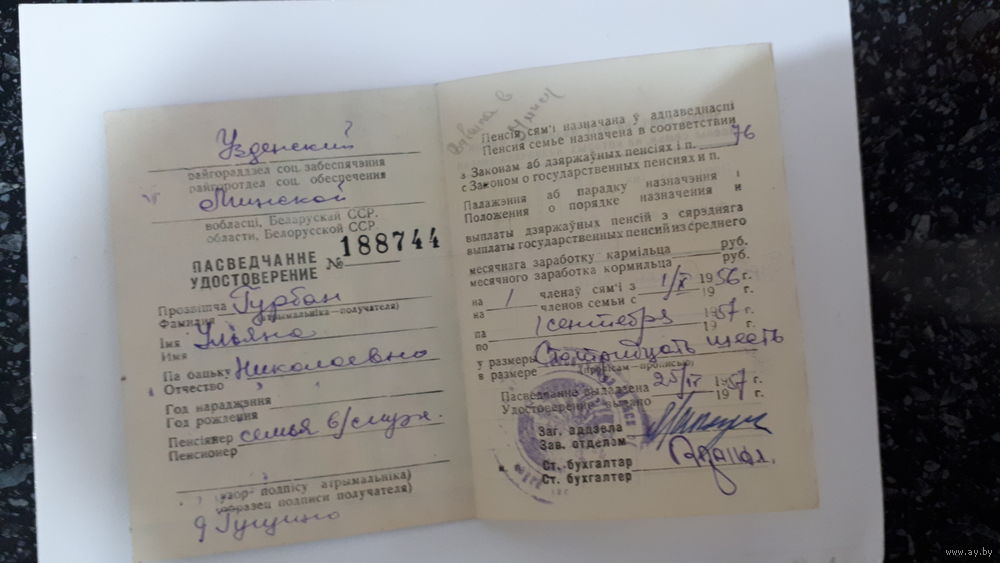 Узденский
райгораддзел соц. забеспячэння
райгоротдел соц. обеспечения
Минской
вобласці, Беларускай ССР.
области, Белорусской ССР
ПАСВЕДЧАННЕ
УДОСТОВЕРЕНИЕ № 188744
Прозвішча Гурбан
Фамилия (атрымальніка—получателя)
Імя Ульяна
Имя
Па бацьку Николаевна
Отчество
Год нараджэння
Год рождения
Пенсіянер семья в/служ.
Пенсионер
(узор подпісу атрымальніка)
(образец подписи получателя)
Пенсія сям'і назначана ў адпаведнасці
Пенсия семье назначена в соответствии
з Законам аб дзяржаўных пенсіях і п. 76
с Законом о государственных пенсиях и п.
Палажэння аб парадку назначэння і
Положения о порядке назначения и
выплаты дзяржаўных пенсій з сярэдняга
выплаты государственных пенсий из среднего
месячнага заработку кармільца руб.
месячного заработка кормильца руб.
на 1 членаў сям'і з 1/IX 1956 г.
на членов семьи с 19 г.
па 1 сентября 1957 г.
по 19 г.
у размеры Сто тридцать шесть
в размере (пропісам—прописью)
Пасведчанне выдадзена 25/IV 1957 г.
Удостоверение выдано 19 г.
Заг. аддзела
Зав. отделом
Ст. бухгалтар
Ст. бухгалтер
www.ay.by